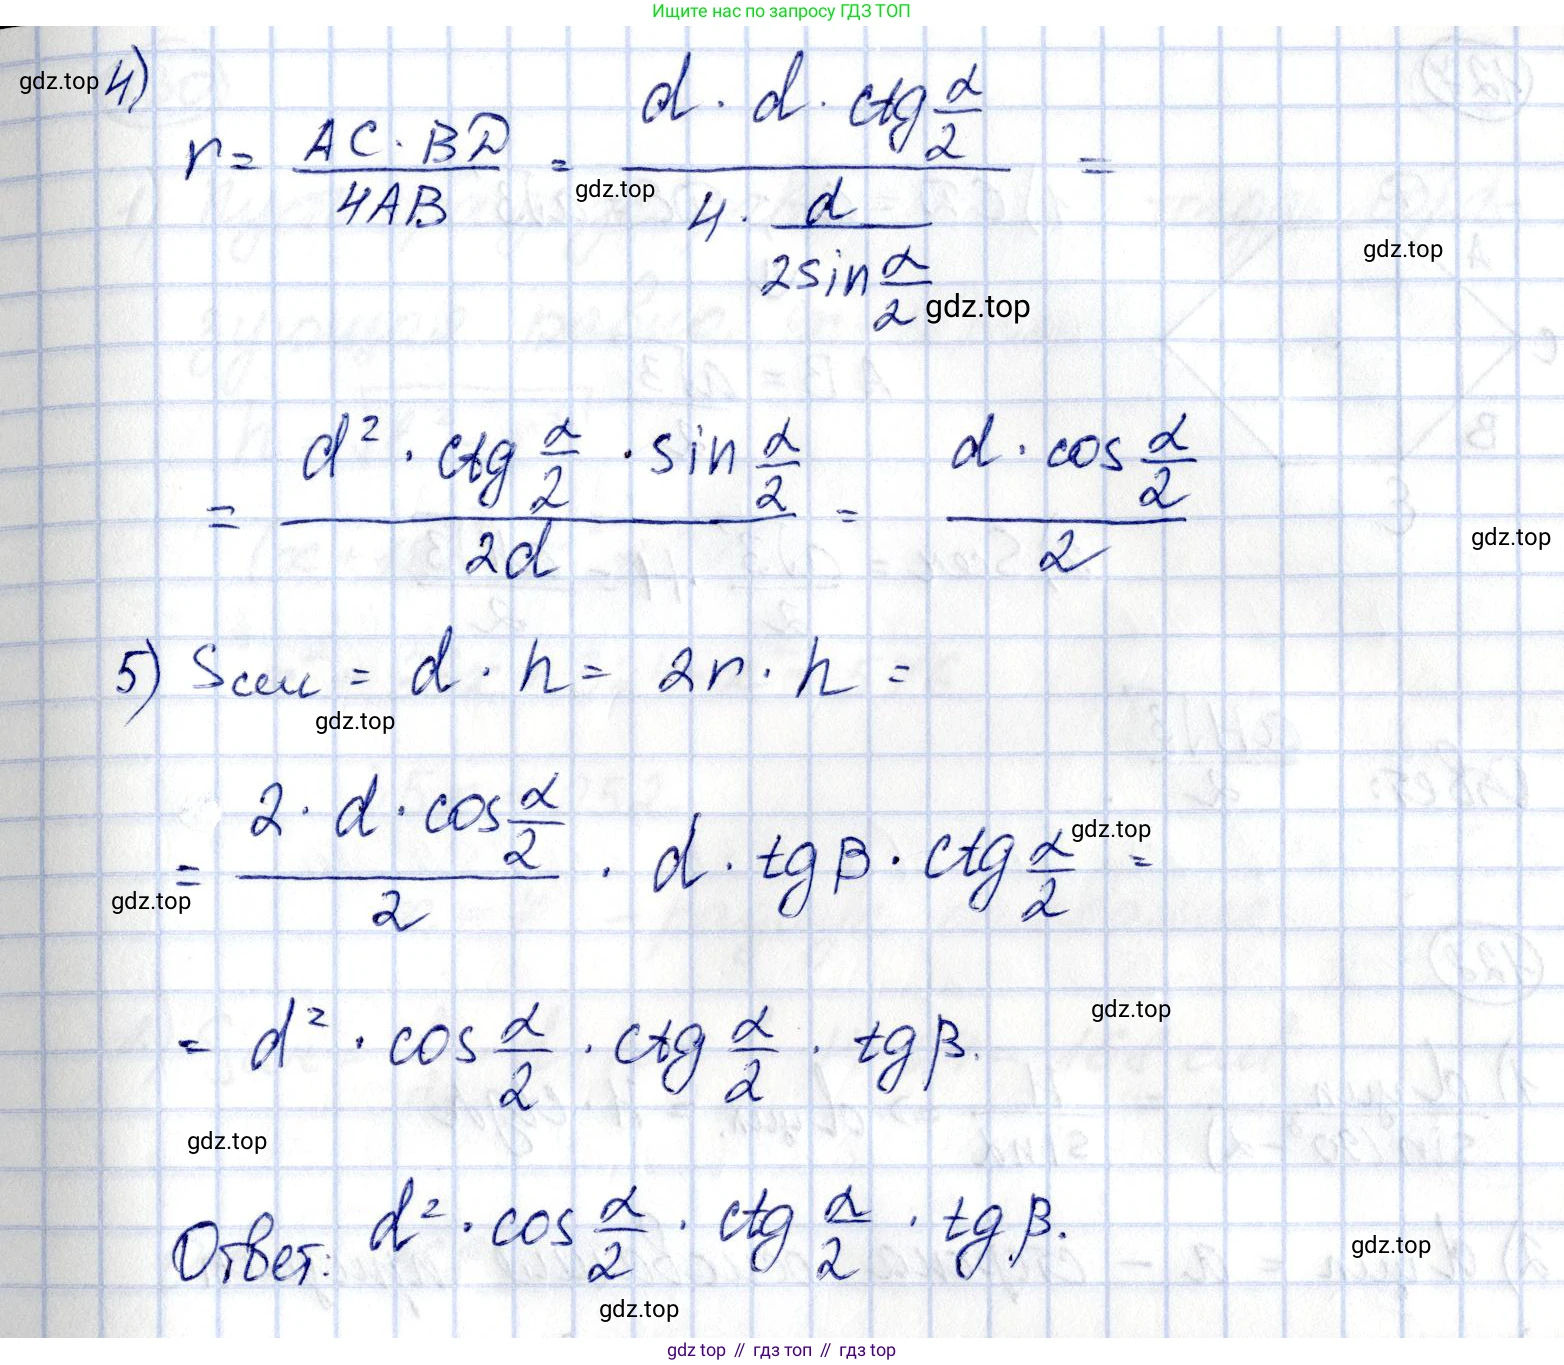 Ищите нас по запросу ГДЗ ТОП
gdz.top 4)
r = AC · BD / 4AB = d · d · ctg α/2 / 4 · d / 2sin α/2 =
gdz.top
gdz.top
gdz.top
= d² · ctg α/2 · sin α/2 / 2d = d · cos α/2 / 2
gdz.top
5) Sсеч = d · h = 2r · h =
gdz.top
= 2 · d · cos α/2 / 2 · d · tg β · ctg α/2 =
gdz.top
gdz.top
= d² · cos α/2 · ctg α/2 · tg β.
gdz.top
gdz.top
Ответ: d² · cos α/2 · ctg α/2 · tg β.
gdz.top
gdz.top
gdz top // гдз топ // гдз top